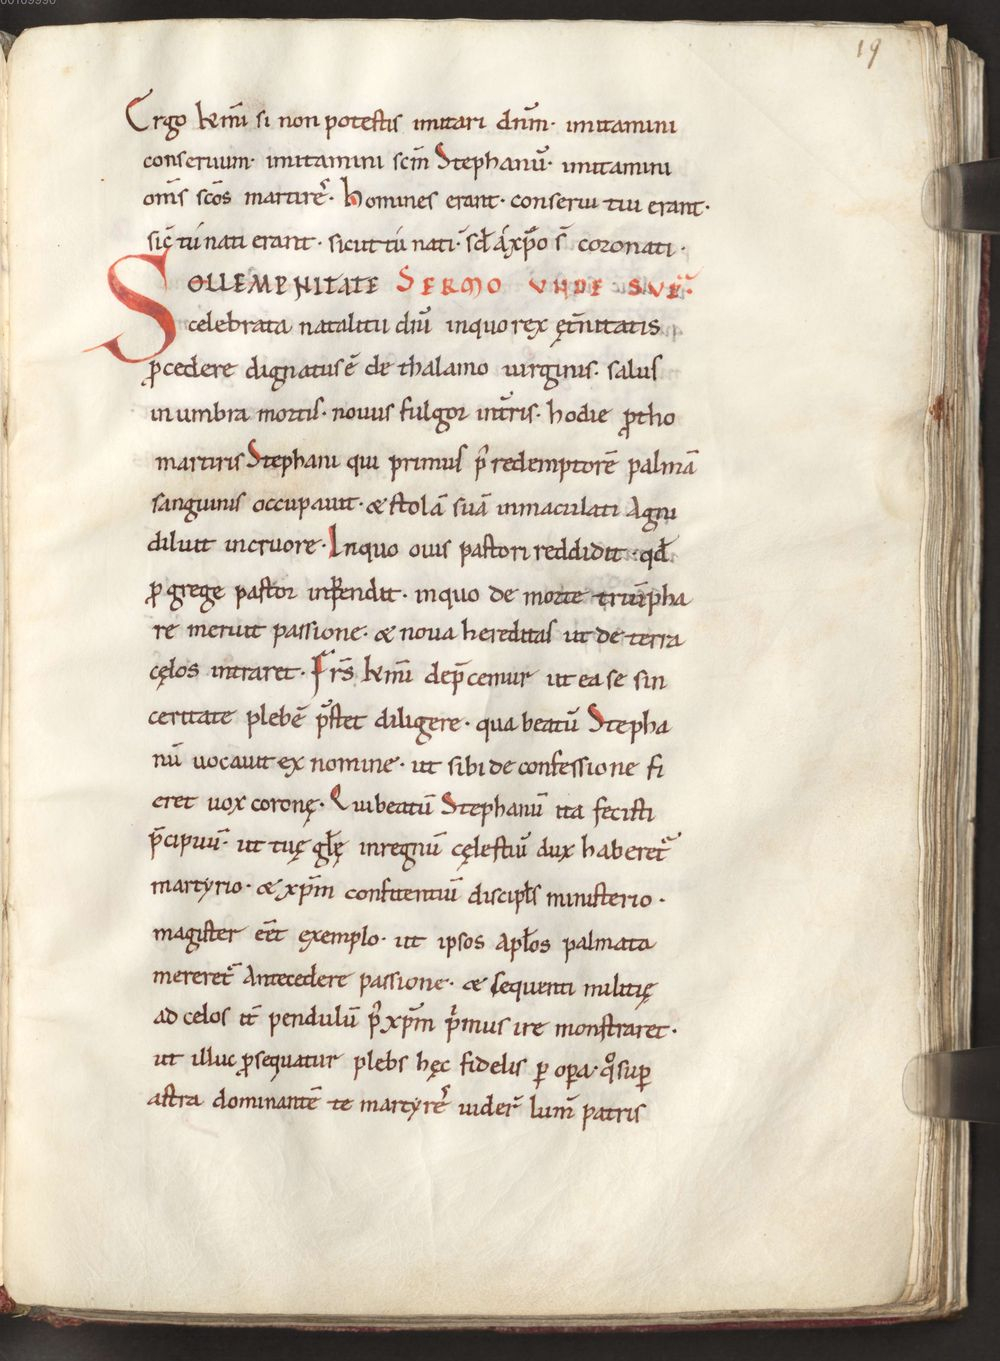 19
Ergo km̄i si non potestis imitari dn̄m· imitamini
conseruum· imitamini scm̄ Stephanū· imitamini
om̄s scōs martirēs· homines erant· conserui tui erant·
sic̄ tú nati erant· sicut tú nati· sꝫ á xp̄o s̄ coronati·
SOLLEMPNITATE SERMO UNDE SUP̄
celebrata natalitii diū inquo rex ęt̄nitatis
ꝓcedere dignatus ē de thalamo uirginis· salus
in umbra mortis· nouus fulgor int̄ris· hodie ꝓtho
martiris Stephani qui primus p̄ redemptorē palmā
sanguinis occupauit· & stolā suā inmaculati Agni
diluit incruore· Inquo ouis pastori reddidit· qd̄
ꝓ grege pastor inpendit· inquo de morte triūpha
re meruit passione· & noua hereditas ut de terra
cęlos intraret· Fr̄s km̄i dep̄cemur ut ea se sin
ceritate plebē p̄stet diligere· qua beatū Stepha
nū uocauit ex nomine· ut sibi de confessione fi
eret uox coronę· Qui beatū Stephanū ita fecisti
p̄cipuū· ut tuę głę inregnū cęlestiū dux haberet̄
martyrio· & xp̄m confitentiū discipłs ministerio·
magister eēt exemplo· ut ipsos Apłos palmata
mereret̄ Antecedere passione· & sequenti militię
ad celos it̄ pendulū p̄ xp̄m p̄mus ire monstraret·
ut illuc ꝓsequatur plebs hęc fidelis ꝑ oꝑa· qͦ suꝑ
astra dominantē te martyrēs uider̄ lum̄ patris